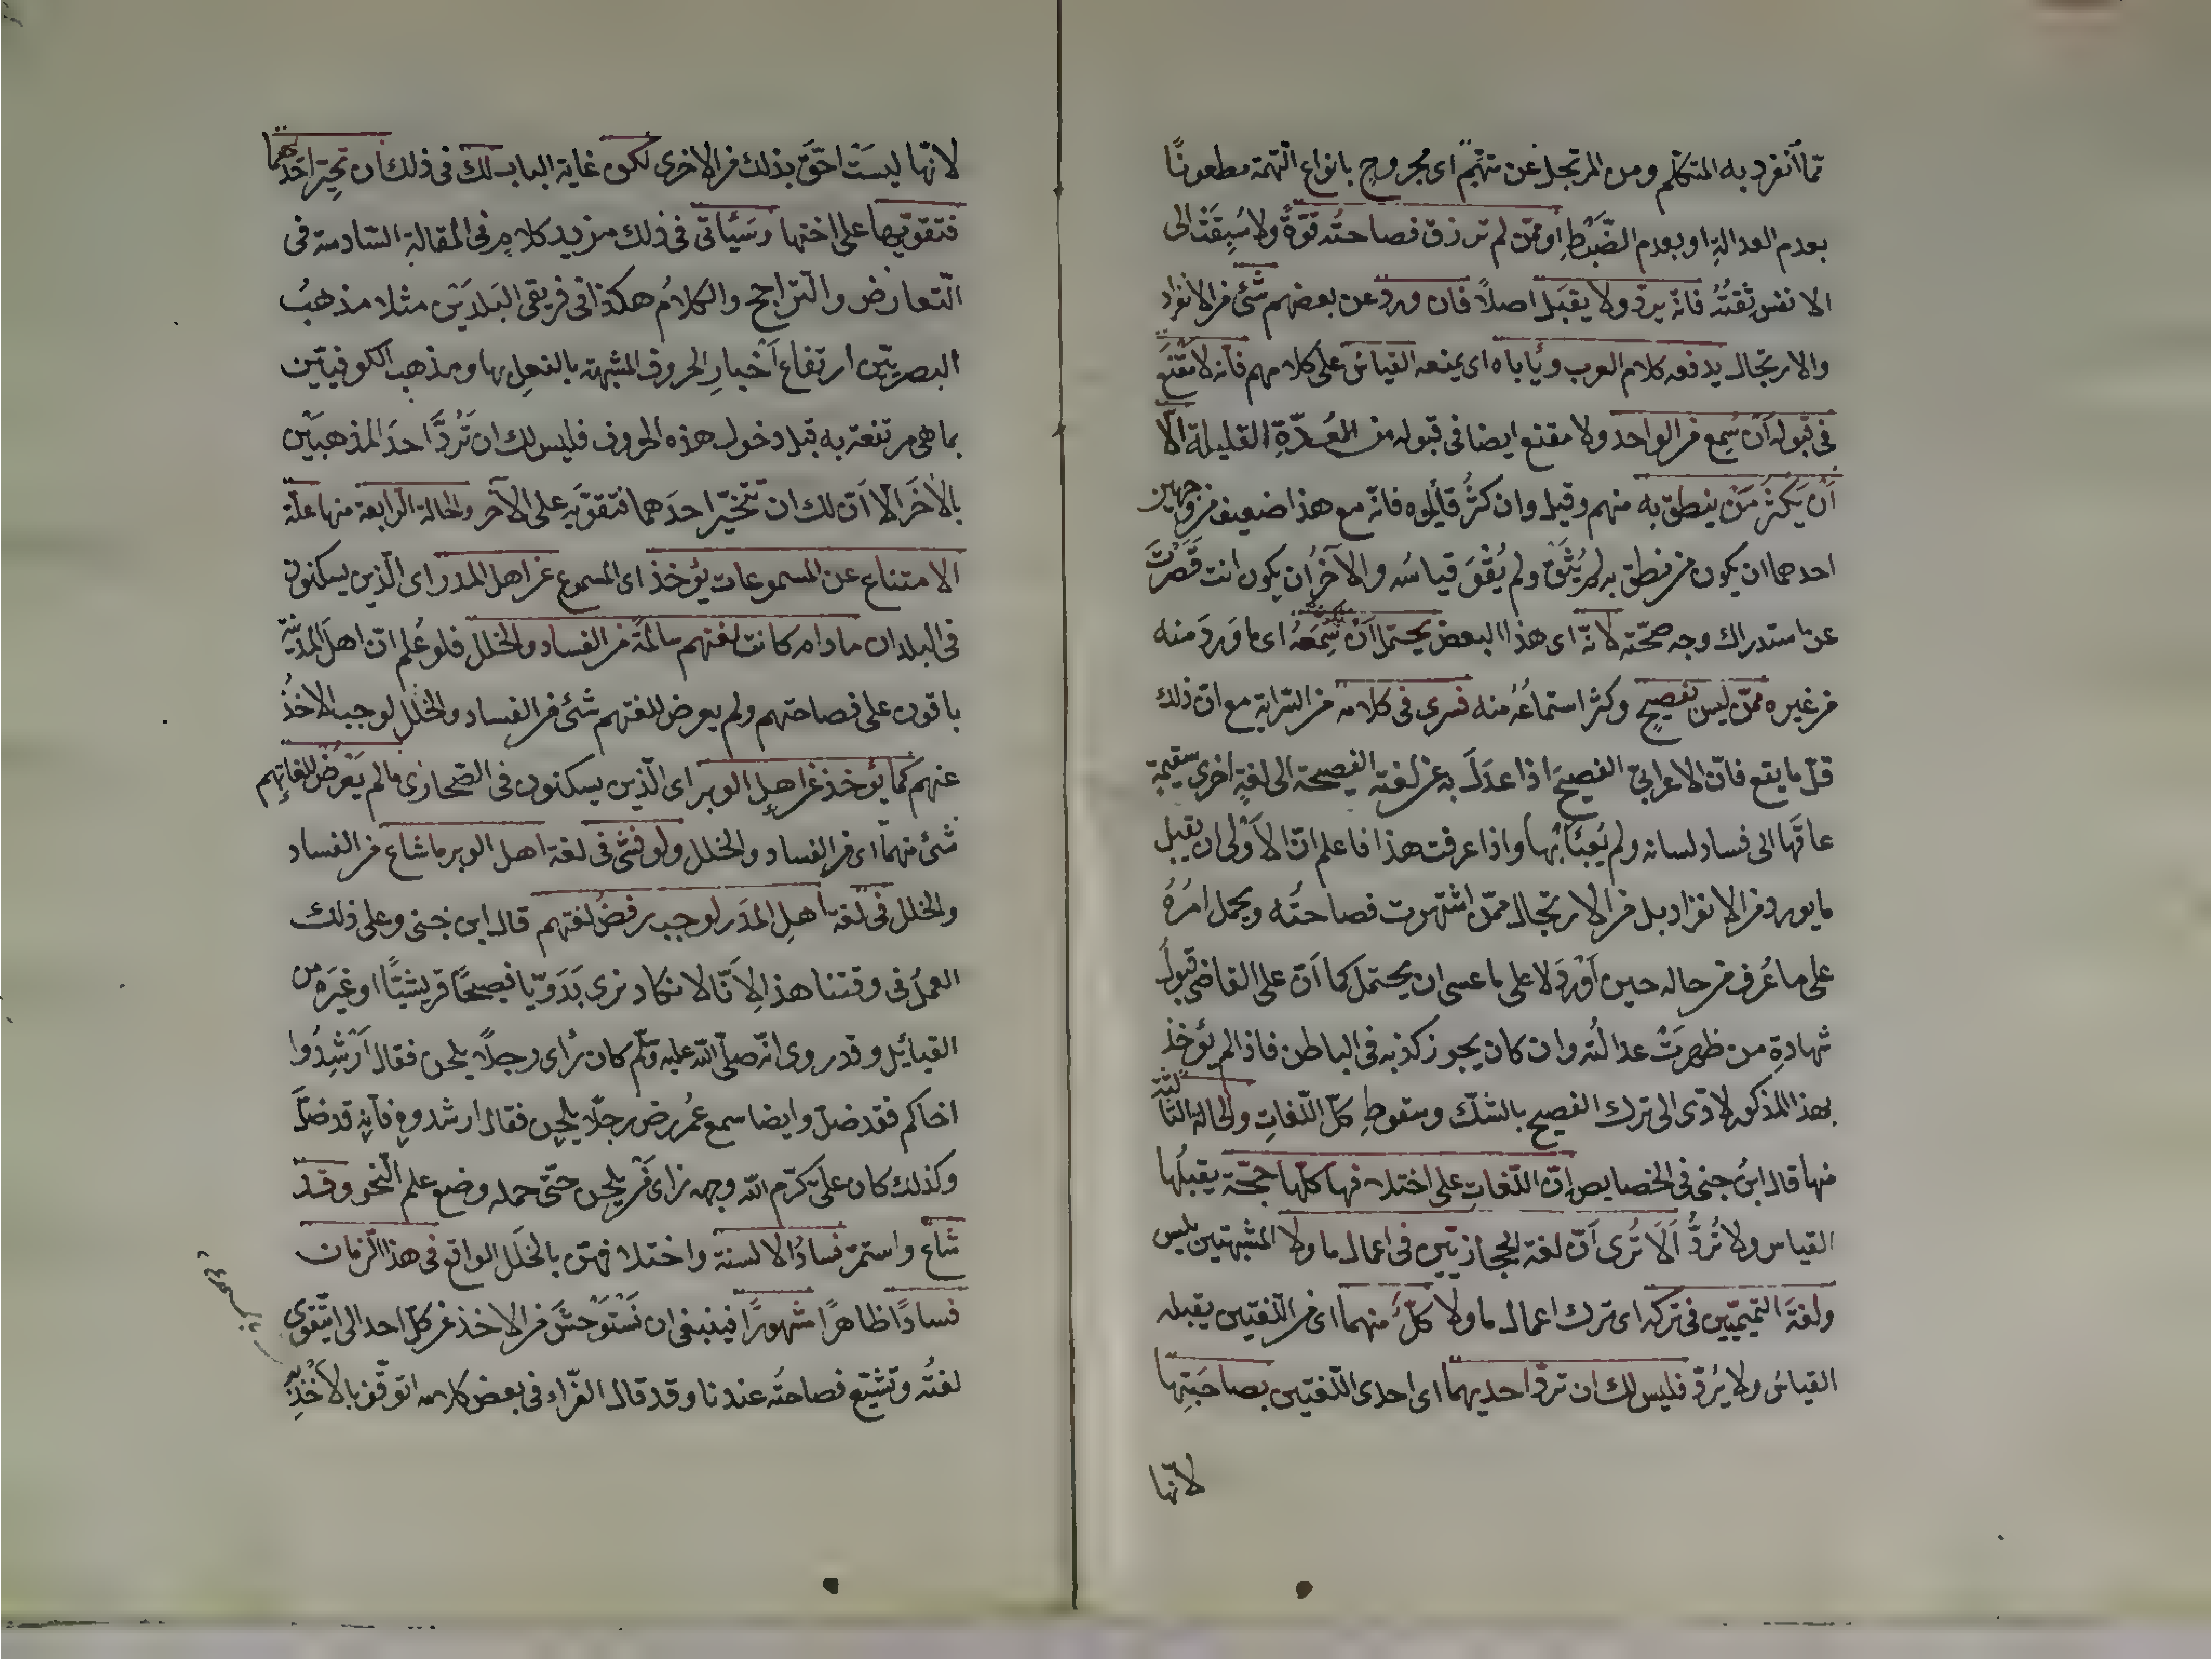 مما انفرد به المتكلم ومن المرتجل عن متهم اى مجروح بانواع التهمة مطعونا
بعدم العدالةِ او بعدم الضَّبْطِ او ممّن لم ترزق فصاحتُه قوّةً ولا سُبِقَتْ الى
الانفس ثقتُهُ فانه يردّ ولا يقبَل اصلاً فان ورد عن بعضهم شئ من الانفراد
والارتجال يدفعه كلام العرب ويأباه اى يمنعه القياسُ على كلامهم فانه لا مَقْنَعَ
فى قبوله اَنْ سُمِع من الواحد ولا مقنع ايضا فى قبوله من العُدّةِ القليلة الّا
اَنْ يَكثُرَ مَنْ ينطق به منهم وقيل وان كثُر قائلوه فانّه مع هذا ضعيف من وجهين
احدهما ان يكون من نطق به لم يُثَقْ ولم يُقْوَ قياسُه والآخرُ ان يكون انت قَصَّرْتَ
عن استدراك وجه صحّته لانّه اى هذا البعض يحتمل اَنْ سَمِعَهُ اى ما وَردَ منه
من غيره ممّن ليس بفصيحٍ وكثر استماعُهُ منه فسرى فى كلامه من السّراية مع انّ ذلك
قلّ ما يقع فانّ الاعرابىّ الفصيحَ اذا عدَلَ به عن لغته الفصيحة الى لغةٍ اخرى سقيمةٍ
عافَها الى فساد لسانه ولم يَعْبَأ بها واذا عرفت هذا فاعلم انّ الاَوْلى ان يقبل
ما يورد من الانفراد بل من الارتجال ممّن اشتهرت فصاحتُه ويحمل امرُهُ
على ما عُرف من حاله حين اَوْرَدَ لا على ما عسى ان يحتمل كما اَنّ على القاضى قبولَ
شهادةِ من ظهرَتْ عدالتُه وان كان يجوز كذبه فى الباطن فاذا لم يؤخذ
بهذا المذكور لادّى الى ترك الفصيح بالشكّ وسقوطِ كلّ اللّغاتِ والحالة الثالثة
منها قال ابنُ جنى فى الخصايص اِنّ اللّغات على اختلافها كلّها حجّة يقبلُها
القياس ولا تُرَدُّ اَلَا تُرى اَنّ لغة الحجازيّين فى اعمال ما ولا المشبهتين بليس
ولغةَ التميميّين فى تركه اى ترك اعمال ما ولا كلٌّ منهما اى من اللّغتين يقبله
القياسُ ولا يُردّ فليس لك ان تردّ احديهما اى احدى اللّغتين بصاحَبَتِها
لانّها
لانّها ليسَتْ احَقّ بذلك من الاخرى لكن غاية الباب لك فى ذلك ان تخير احدهما
فتقوّيها على اختها وسَيَأتى فى ذلك مزيد كلام فى المقالة السّادسة فى
التّعارض والتّراجح والكلامُ هكذا فى فريقى البَلدَيْن مثلا مذهبُ
البصريّين ارتفاع اَخبارِ الحروف المشبهة بالفعِل بها ومذهب الكوفيّين
بما هى مرتفعة به قبل دخول هذه الحروف فليس لك ان تَرُدَّ احدَ المذهبَيْن
بالآخَر الّا اَنّ لك ان تَتَخيّر احدَهما فتقوّيه على الآخر والحالة الرابعة منها علّة
الامتناع عن المسموعات يؤخذ اى المسموع عن اهل المدر اى الّذين يسكنون
فى البلدان ما دام كانت لغتهم سالمَةً من الفساد والخلل فلو عُلم انّ اهل المدينة
باقون على فصاحتهم ولم يعرض للغتهم شئ من الفساد والخلل لوجب الاخذُ
عنهم كما يؤخذ عن اهل الوبر اى الّذين يسكنون فى الصّحارى ما لم يَعْرِضْ للغاتهم
شئ منهما اى من الفساد والخلل ولو فشى فى لغة اهل الوبر ما شاع من الفساد
والخلل فى لغة اهل المدَر لوجب رفضُ لغتهم قال ابن جنى وعلى ذلك
العملُ فى وقتنا هذا لِاَنّا لا نكاد نرى بَدَوِيّا فصيحًا قريشيًّا او غيرَه من
القبائل وقد روى انّه صلّى اللّه عليه وسلّم كان راى رجلًا يلحن فقال اَرْشِدُوا
اخاكم فقد ضلّ وايضا سمع عُمر رض رجلًا يلحن فقال ارشدوه فاَنه قد ضلّ
وكذلك كان علىّ كرّم اللّه وجهه راى مَنْ يلحن حتّى حمله وضع علم النّحو وقد
شاع واستمرّ فسادُ الالسنة واختلافهن بالخلَل الواقع فى هذا الزمان
فسادًا ظاهرًا مشهورًا فينبغى ان نَسْتَوحشَ من الاخذ عن كلّ احد الى ان تقوى
لغتُه وتشيّع فصاحتُه عندنا وقد قال الفرّاء فى بعض كلامه اتوقّف بالاَخْذِ